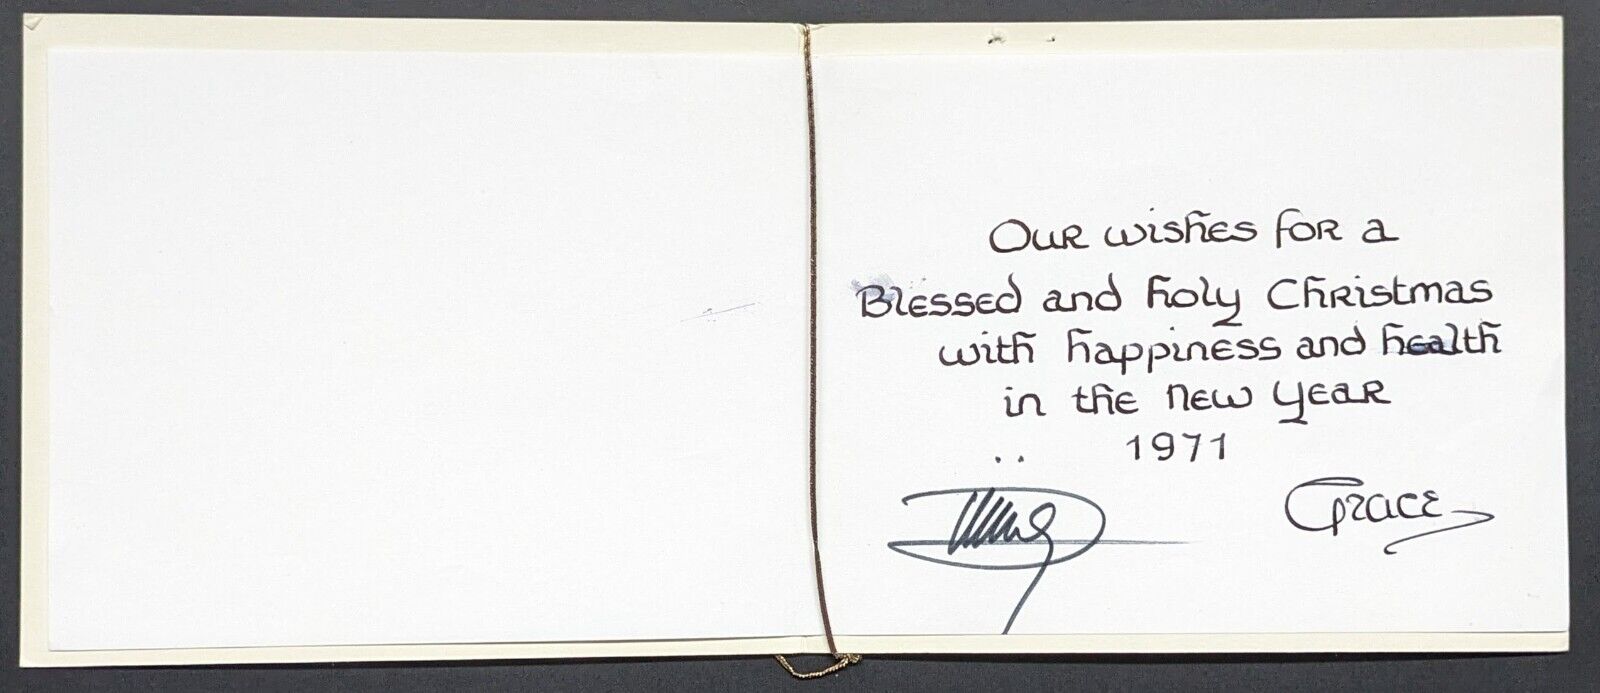 Our wishes for a
Blessed and holy Christmas
with happiness and health
in the new year
. . 1971
Grace